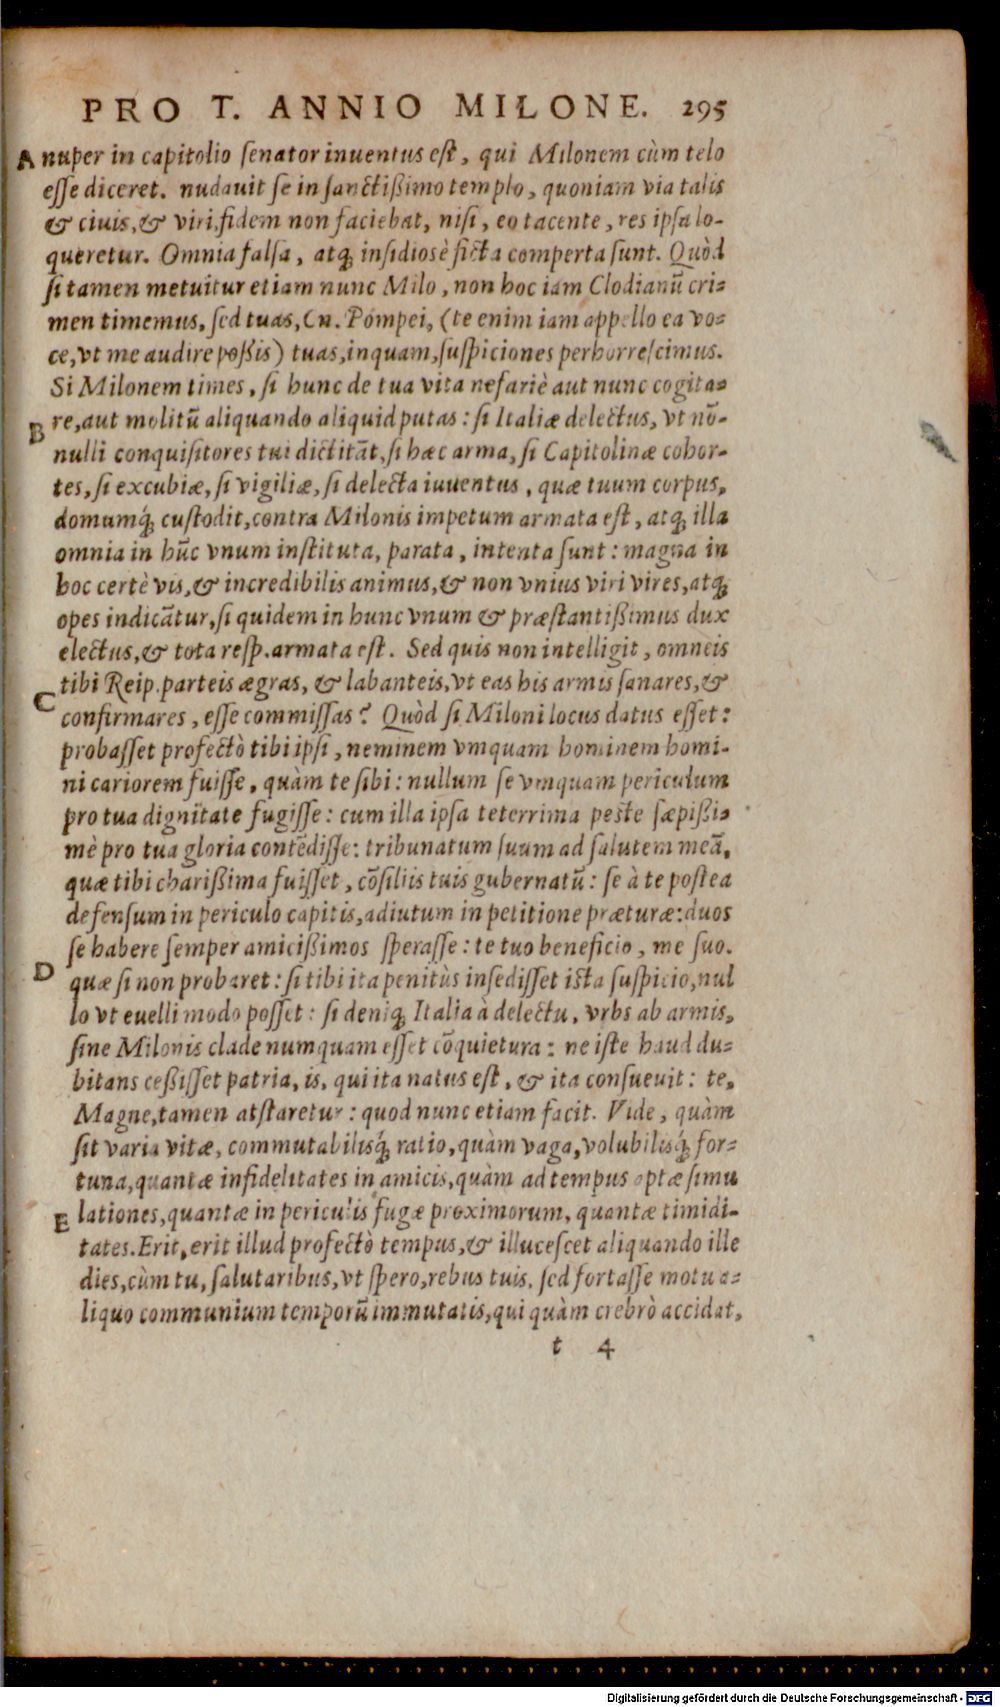 PRO T. ANNIO MILONE. 295
A nuper in capitolio senator inuentus est, qui Milonem cùm telo
esse diceret. nudauit se in sanctißimo templo, quoniam via talis
& ciuis, & viri, fidem non faciebat, nisi, eo tacente, res ipsa lo-
queretur. Omnia falsa, atq; insidiosè ficta comperta sunt. Quòd
si tamen metuitur etiam nunc Milo, non hoc iam Clodianū cri-
men timemus, sed tuas, Cn. Pompei, (te enim iam appello ea vo-
ce, vt me audire poßis) tuas, inquam, suspiciones perhorrescimus.
Si Milonem times, si hunc de tua vita nefariè aut nunc cogita-
B re, aut molitū aliquando aliquid putas: si Italiæ delectus, vt nō-
nulli conquisitores tui dictitāt, si hæc arma, si Capitolinæ cohor-
tes, si excubiæ, si vigiliæ, si delecta iuuentus, quæ tuum corpus,
domumq́; custodit, contra Milonis impetum armata est, atq; illa
omnia in hūc vnum instituta, parata, intenta sunt: magna in
hoc certè vis, & incredibilis animus, & non vnius viri vires, atq;
opes indicātur, si quidem in hunc vnum & præstantißimus dux
electus, & tota resp. armata est. Sed quis non intelligit, omneis
C tibi Reip. parteis ægras, & labanteis, vt eas his armis sanares, &
confirmares, esse commissas? Quòd si Miloni locus datus esset:
probasset profectò tibi ipsi, neminem vmquam hominem homi-
ni cariorem fuisse, quàm te sibi: nullum se vmquam periculum
pro tua dignitate fugisse: cum illa ipsa teterrima peste sæpißi-
mè pro tua gloria contēdisse: tribunatum suum ad salutem meā,
quæ tibi charißima fuisset, cōsiliis tuis gubernatū: se à te postea
defensum in periculo capitis, adiutum in petitione præturæ: duos
se habere semper amicißimos sperasse: te tuo beneficio, me suo.
D quæ si non probaret: si tibi ita penitùs insedisset ista suspicio, nul
lo vt euelli modo posset: si deniq; Italia à delectu, vrbs ab armis,
sine Milonis clade numquam esset cōquietura: ne iste haud du-
bitans ceßisset patria, is, qui ita natus est, & ita consueuit: te,
Magne, tamen atstaretur: quod nunc etiam facit. Vide, quàm
sit varia vitæ, commutabilisq́; ratio, quàm vaga, volubilisq́; for-
tuna, quantæ infidelitates in amicis, quàm ad tempus optæ simu
E lationes, quantæ in periculis fugæ proximorum, quantæ timidi-
tates. Erit, erit illud profectò tempus, & illucescet aliquando ille
dies, cùm tu, salutaribus, vt spero, rebus tuis, sed fortasse motu a-
liquo communium temporū immutatis, qui quàm crebrò accidat,
t 4
Digitalisierung gefördert durch die Deutsche Forschungsgemeinschaft - DFG